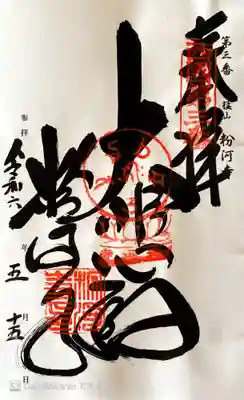 奉拝
第三番
粉河寺
大悲殿
粉河寺
参拝
令和六年五月十五日